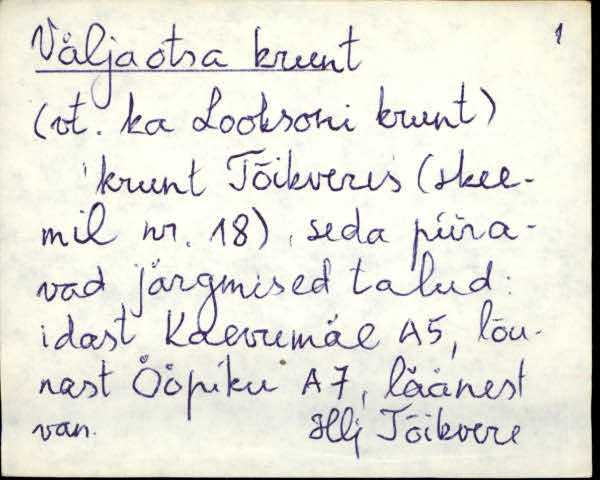 Väljaotsa krunt 1
(vt. ka Looksoni krunt)
krunt Tõikveres (skee-
mil nr. 18), seda piira-
vad järgmised talud:
idast Kaevumäe A5, lõu-
nast Ööpiku A7, läänest
van. Hlj Tõikvere